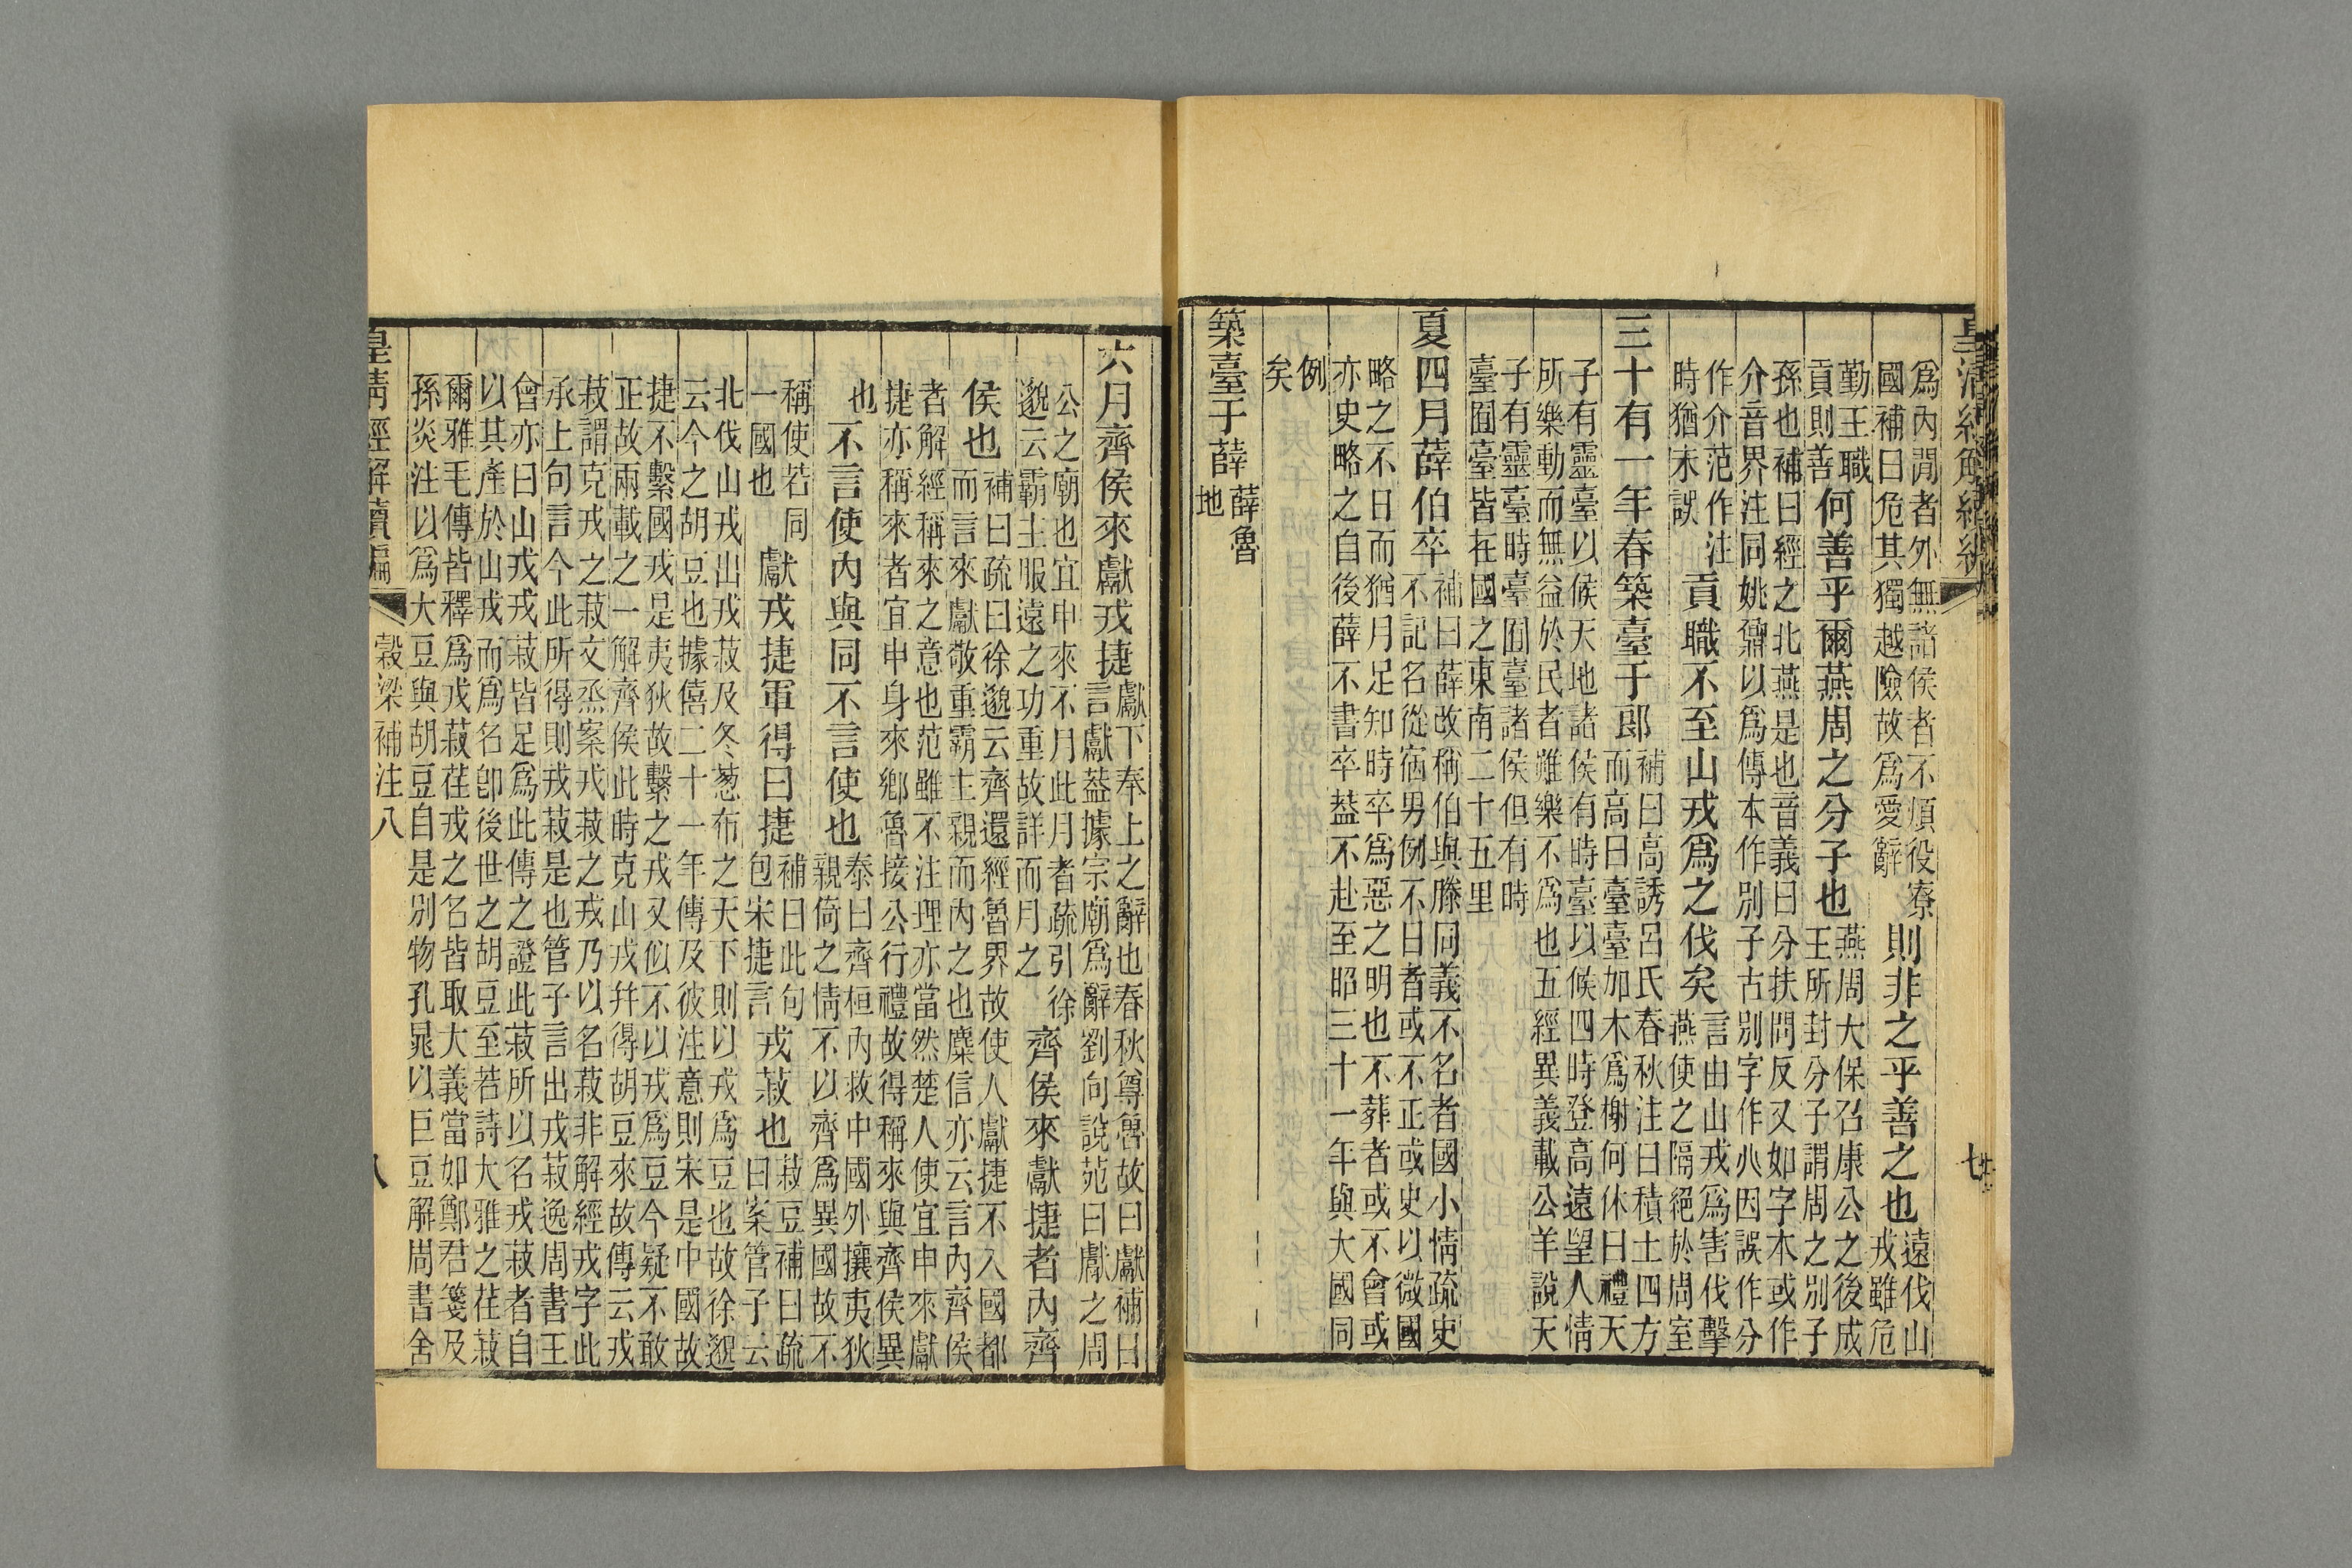 皇清經解續編
七
爲內閒者外無諸侯者不煩役寮
國補曰危其獨越險故爲愛辭
則非之乎善之也
遠伐山
戎雖危
勤王職
貢則善
何善乎爾燕周之分子也
燕周大保召康公之後成
王所封分子謂周之別子
孫也補曰經之北燕是也音義曰分扶問反又如字本或作
介音界注同姚鼐以爲傳本作別子古別字作𠔁因誤作分
作介范作注
時猶未誤
貢職不至山戎爲之伐矣
言由山戎爲害伐擊
燕使之隔絕於周室
三十有一年春築臺于郎
補曰高誘呂氏春秋注曰積土四方
而高曰臺臺加木爲榭何休曰禮天
子有靈臺以候天地諸侯有時臺以候四時登高遠望人情
所樂動而無益於民者雖樂不爲也五經異義載公羊說天
子有靈臺時臺囿臺諸侯但有時
臺囿臺皆在國之東南二十五里
夏四月薛伯卒
補曰薛改稱伯與滕同義不名者國小情疏史
不記名從宿男例不日者或不正或史以微國
略之不日而猶月足知時卒爲惡之明也不葬者或不會或
亦史略之自後薛不書卒葢不赴至昭三十一年與大國同
例
矣
築臺于薛
薛魯
地
六月齊侯來獻戎捷
獻下奉上之辭也春秋尊魯故曰獻補曰
言獻葢據宗廟爲辭劉向說苑曰獻之周
公之廟也宜申來不月此月者疏引徐
邈云霸主服遠之功重故詳而月之
齊侯來獻捷者內齊
侯也
補曰疏曰徐邈云齊還經魯界故使人獻捷不入國都
而言來獻敬重霸主親而內之也麋信亦云言內齊侯
者解經稱來之意也范雖不注理亦當然楚人使宜申來獻
捷亦稱來者宜申身來鄉魯接公行禮故得稱來與齊侯異
也
不言使內與同不言使也
泰曰齊桓內救中國外攘夷狄
親倚之情不以齊爲異國故不
稱使若同
一國也
獻戎捷軍得曰捷
補曰此句
包宋捷言
戎菽也
菽豆補曰疏
曰案管子云
北伐山戎出戎菽及冬葱布之天下則以戎爲豆也故徐邈
云今之胡豆也據僖二十一年傳及彼注意則宋是中國故
捷不繫國戎是夷狄故繫之戎又似不以戎爲豆今疑不敢
正故兩載之一解齊侯此時克山戎幷得胡豆來故傳云戎
菽謂克戎之菽文烝案戎菽之戎乃以名菽非解經戎字此
承上句言今此所得則戎菽是也管子言出戎菽逸周書王
會亦曰山戎戎菽皆足爲此傳之證此菽所以名戎菽者自
以其產於山戎而爲名卽後世之胡豆至若詩大雅之荏菽
爾雅毛傳皆釋爲戎菽荏戎之名皆取大義當如鄭君箋及
孫炎注以爲大豆與胡豆自是別物孔晁以巨豆解周書舍
皇清經解續編
穀梁補注八
八